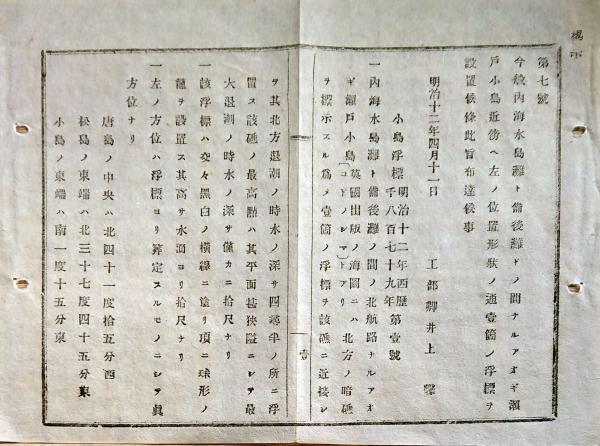 標示
第七號
今般內海水島灘ト備後灘トノ間ナルアオギ瀨
戶小島近傍ヘ左ノ位置形狀ノ通壹箇ノ浮標ヲ
設置候條此旨布達候事
明治十二年四月十一日 工部卿井上 馨
小島浮標 明治十二年西曆千八百七十九年 第壹號
一內海水島灘ト備後灘ノ間ノ北航路ナルアオ
ギ瀨戶小島(英國出版ノ海圖ニハコドノシマトアリ)北方ノ暗礁
ヲ標示スル爲メ壹箇ノ浮標ヲ該礁ニ近接シ
壹
ヲ其北方退潮ノ時水ノ深サ四尋半ノ所ニ浮
置ス該礁ノ最高點ハ其平面甚狹隘ニシテ最
大退潮ノ時水ノ深サ僅カニ拾尺ナリ
一該浮標ハ交々黑白ノ橫線ニ塗リ頂ニ球形ノ
籠ヲ設置ス其高サ水面ヨリ拾尺ナリ
一左ノ方位ハ浮標ヨリ算定スルモノニシテ眞
方位ナリ
唐島ノ中央ハ北四十一度拾五分西
松島ノ東端ハ北三十七度四十五分東
小島ノ東端ハ南一度十五分東